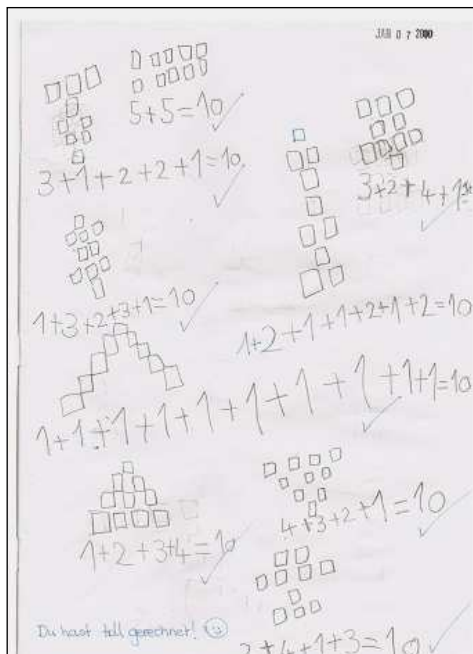 JAN 07 2000
5+5=10
3+1+2+2+1=10
3+2+4+1
1+3+2+3+1=10
1+2+1+1+2+1+2=10
1+1+1+1+1+1+1+1+1+1=10
4+3+2+1=10
1+2+3+4=10
Du hast toll gerechnet!
+4+1+3=10